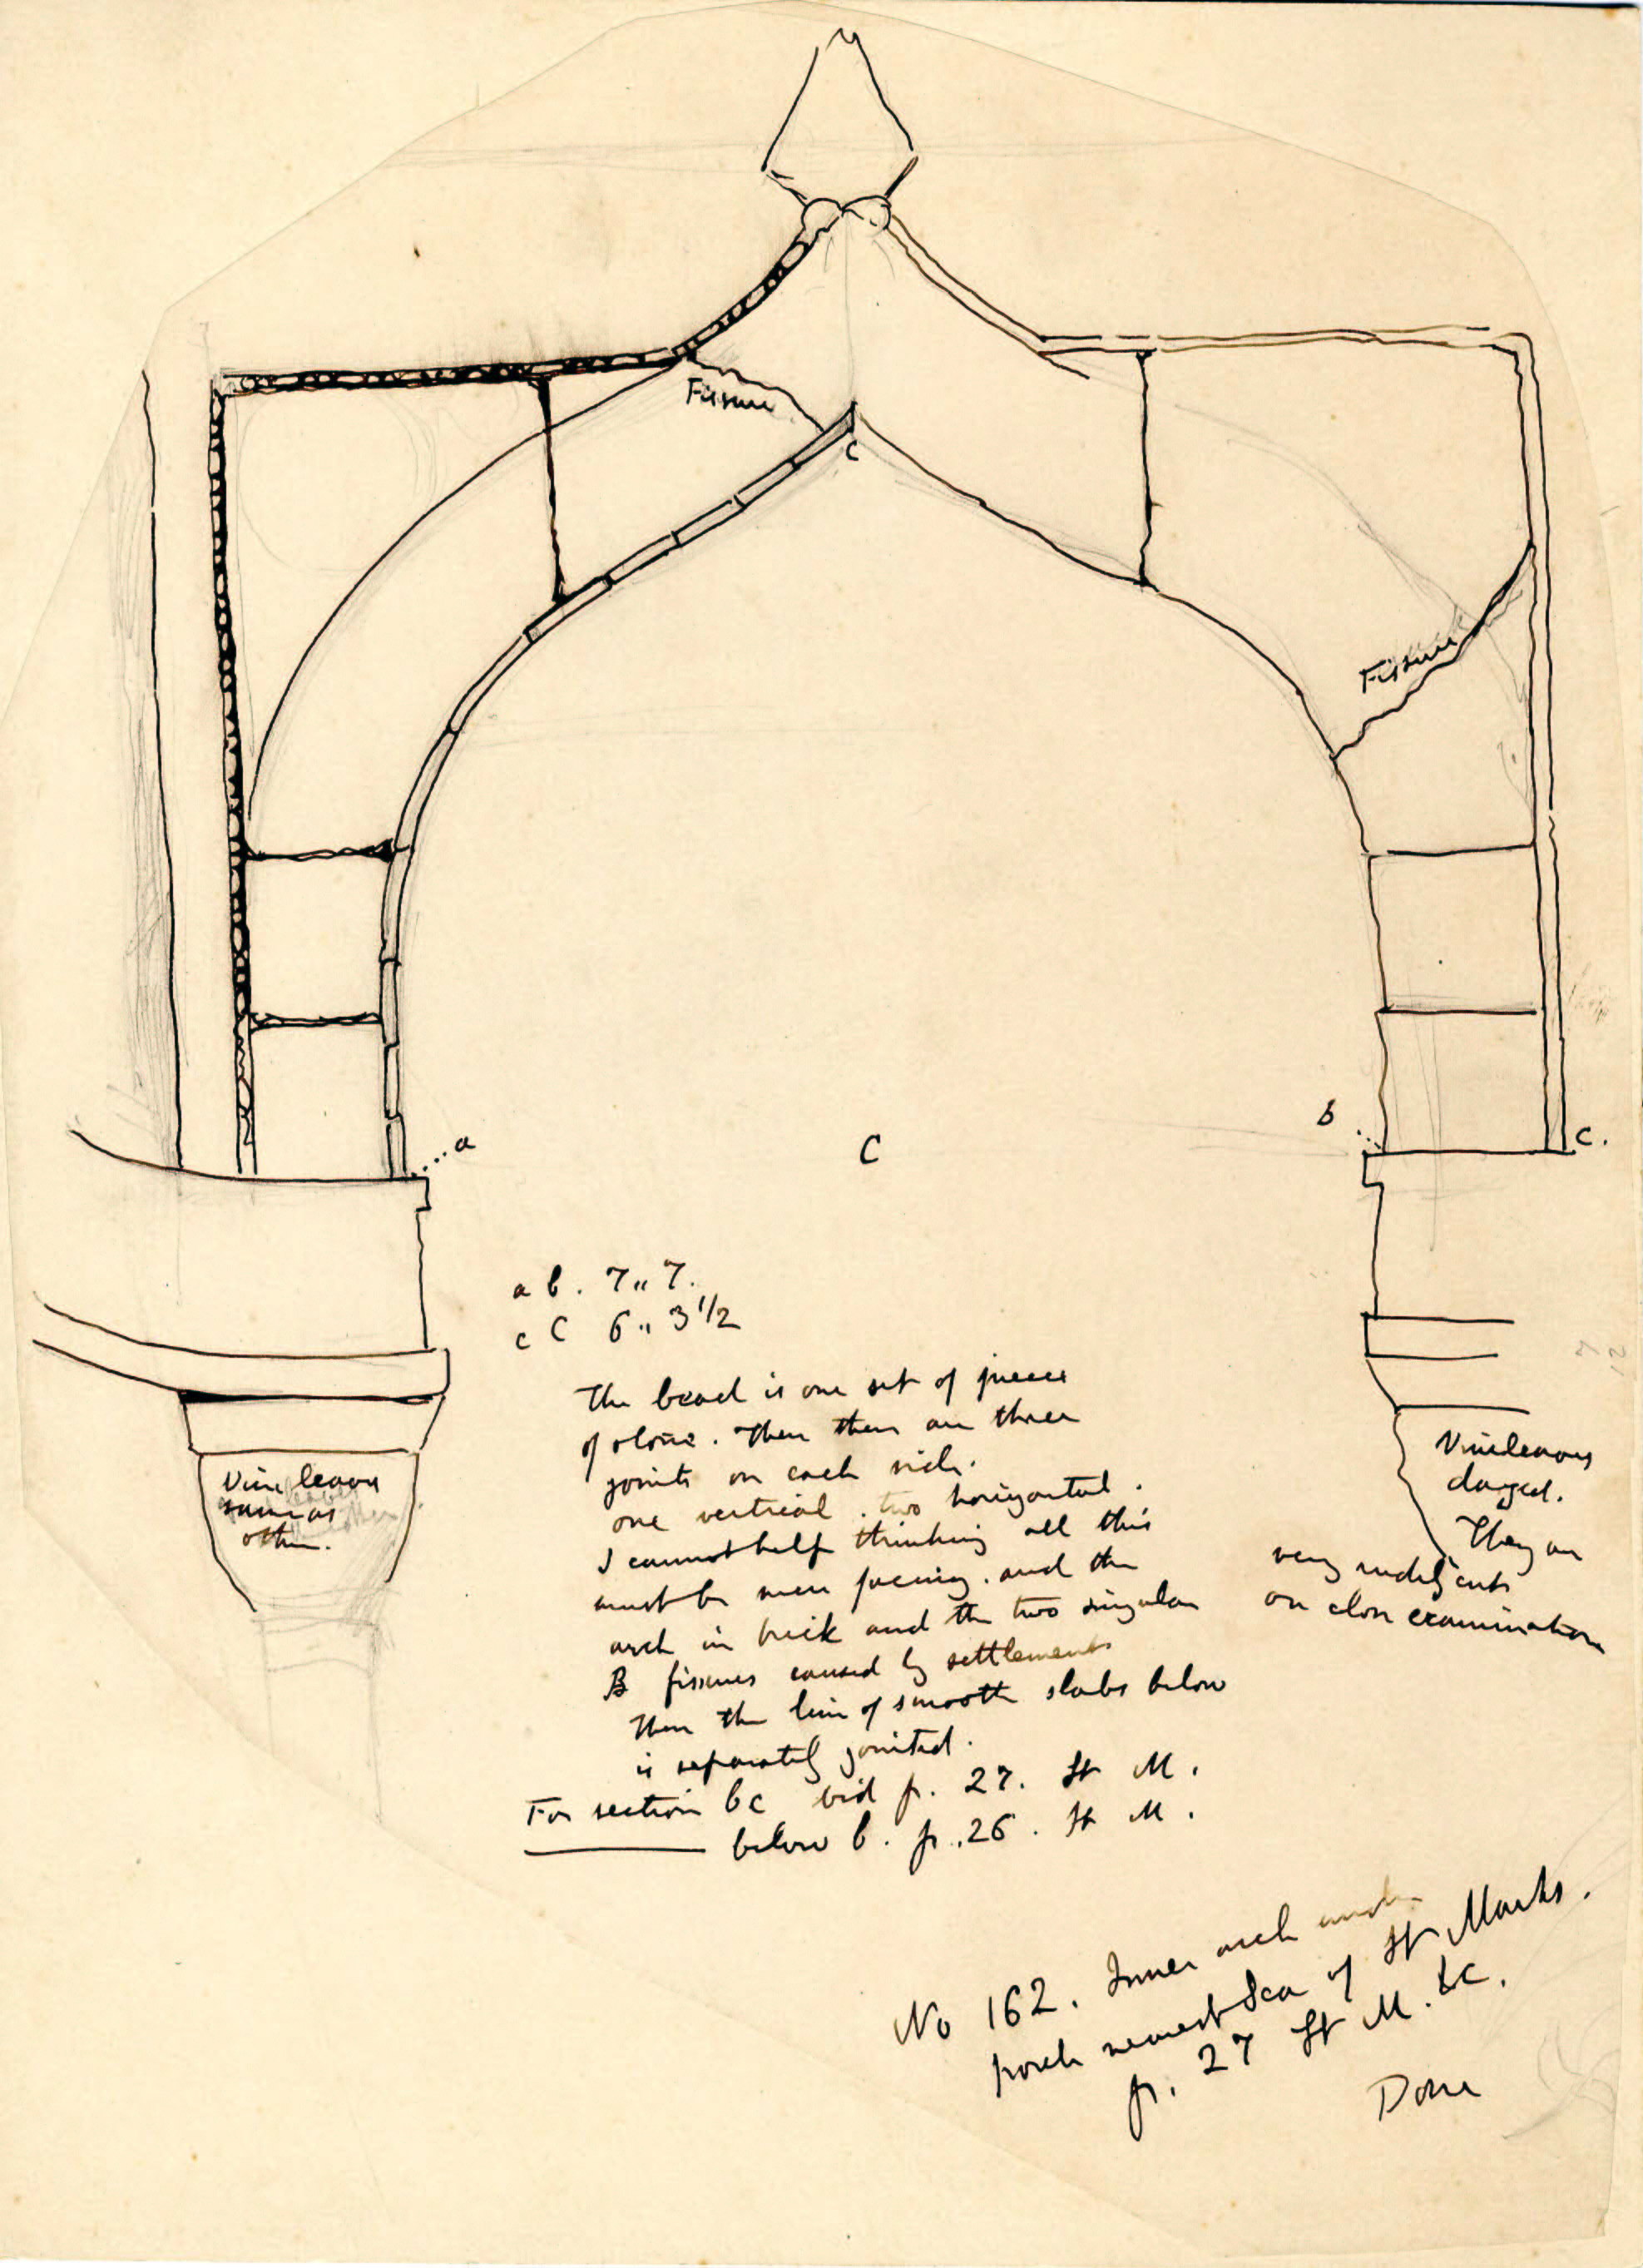 Fissure
c
Fissure
a
C
b
c.
a b. 7,, 7.
c C 6,, 3 1/2
The bead is one set of pieces
of stone. Then there are three
joints on each side.
one vertical. two horizontal.
I cannot help thinking all this
must be mere facing. and the
arch in brick and the two singular
B fissures caused by settlements
Then the line of smooth slabs below
is separately jointed.
For section bc vid p. 27. St M.
below b. p. 26. St M.
Vine leaves
same as
other.
Vineleaves
They are
very rudely cut
on close examination
No 162. Inner arch under
porch nearest Sea of St Marks.
p. 27 St M. &c.
Done